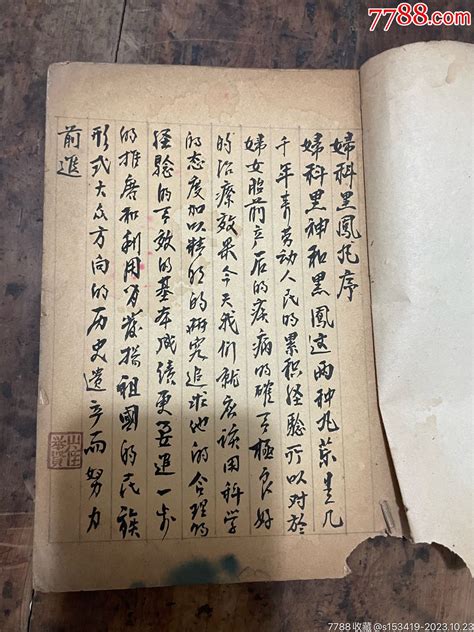 7788.com
婦科黑鳳丸序
婦科黑神和黑鳳这两种丸藥是几
千年前劳动人民的累积经驗所以对於
婦女胎前产后的疾病的確有極良好
的治療效果今天我们就应该用科学
的态度加以精的研究追求他的合理的
经驗的有效的基本成绩更要進一步
的推廣和利用發揚祖國的民族
形式大众方向的历史遺产而努力
前進
7788收藏@s153419-2023.10.23